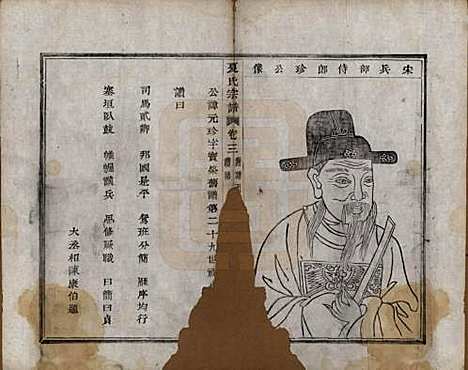 宋兵部侍郎珍公像
夏氏宗譜卷三
公諱元珍字寶榮舊譜第二十九世祖
讚曰
司馬貳卿 邦國是平 鴛班分簡 雁序均行
塞垣臥鼓 帷幄談兵 風修厥職 曰簡曰貞
大丞相陳康伯題